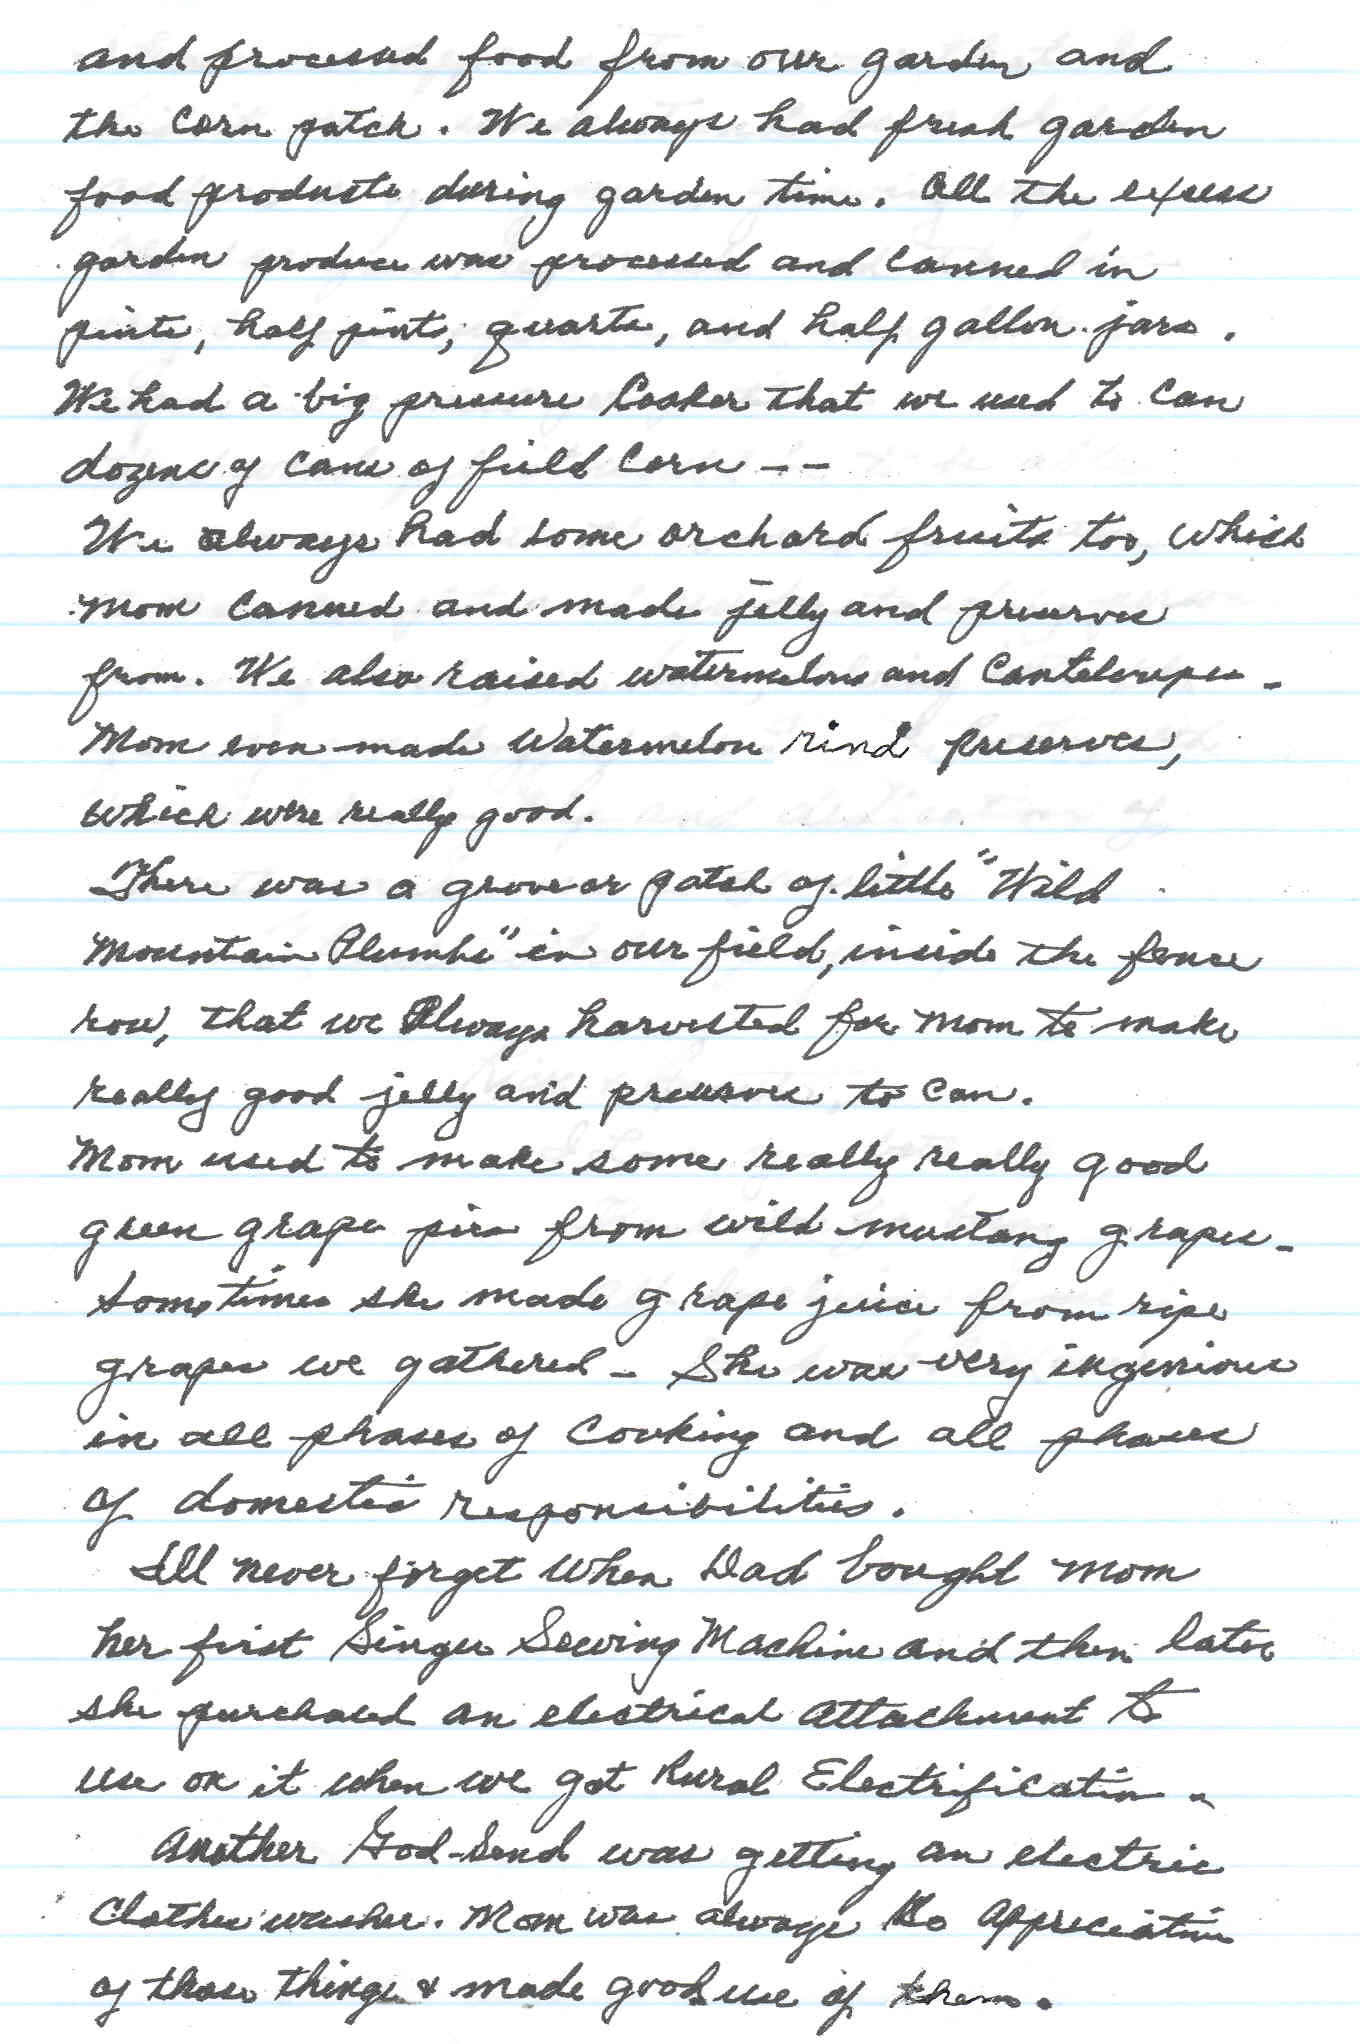 and processed food from our garden and
the corn patch. We always had fresh garden
food products during garden time. All the exsess
garden produce was processed and canned in
pints, half pints, quarts, and half gallon jars.
We had a big pressure Cooker that we used to can
dozens of cans of field Corn --
We always had some orchard fruits too, which
Mom canned and made jelly and preserves
from. We also raised watermelons and Canteloupes -
Mom even made Watermelon rind preserves,
which were really good.
There was a grove or patch of little "Wild
Mountain Plumbs" in our field, inside the fence
row, that we Always harvested for Mom to make
really good jelly and preserves to can.
Mom used to make some really really good
green grape pies from wild mustang grapes -
Sometimes she made grape juice from ripe
grapes we gathered - She was very ingenious
in all phases of Cooking and all phases
of domestic responsibilities.
I'll never forget when Dad bought Mom
her first Singer Sewing Machine and then later
she purchased an electrical attachment to
use on it when we got Rural Electrification -
Another God-Send was getting an electric
Clothes washer. Mom was always so appreciative
of those things & made good use of them.